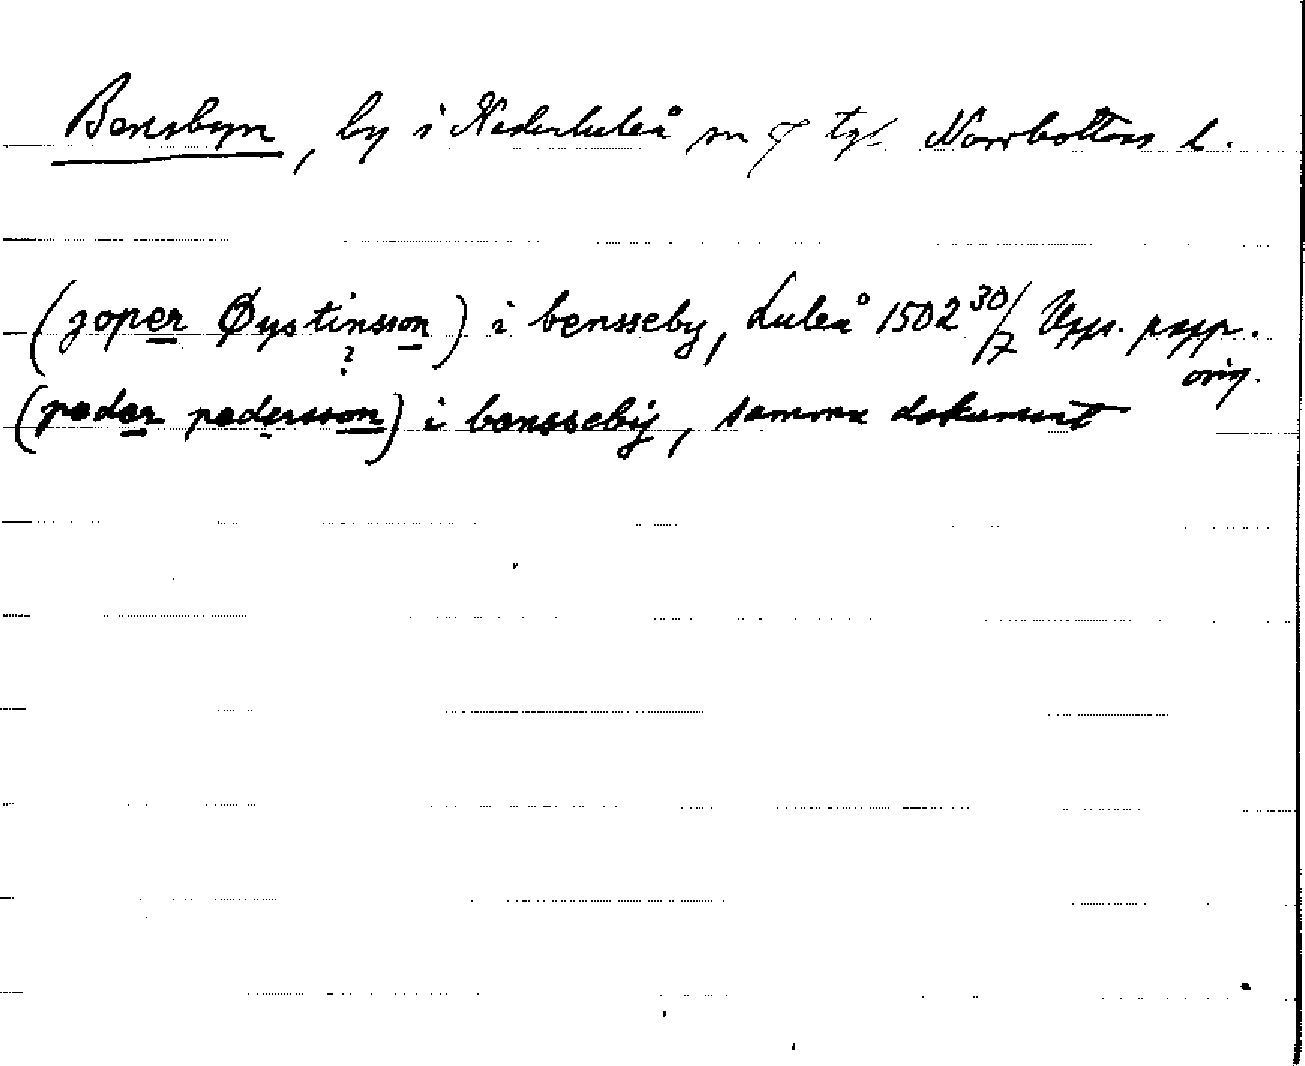 Bensbyn, by i Nederluleå sn tgl Norrbottens l.
(joper Øystinsson) i bensseby, Luleå 1502 30/7 Upps. papp.
? orig.
(peder pedersson) i benssebÿ, samma dokument